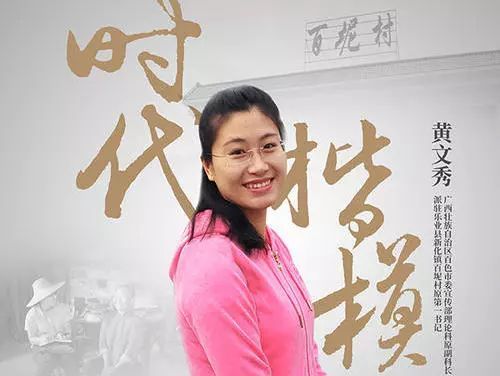 时代
楷模
百坭村
黄文秀
广西壮族自治区百色市委宣传部理论科原副科长
派驻乐业县新化镇百坭村原第一书记